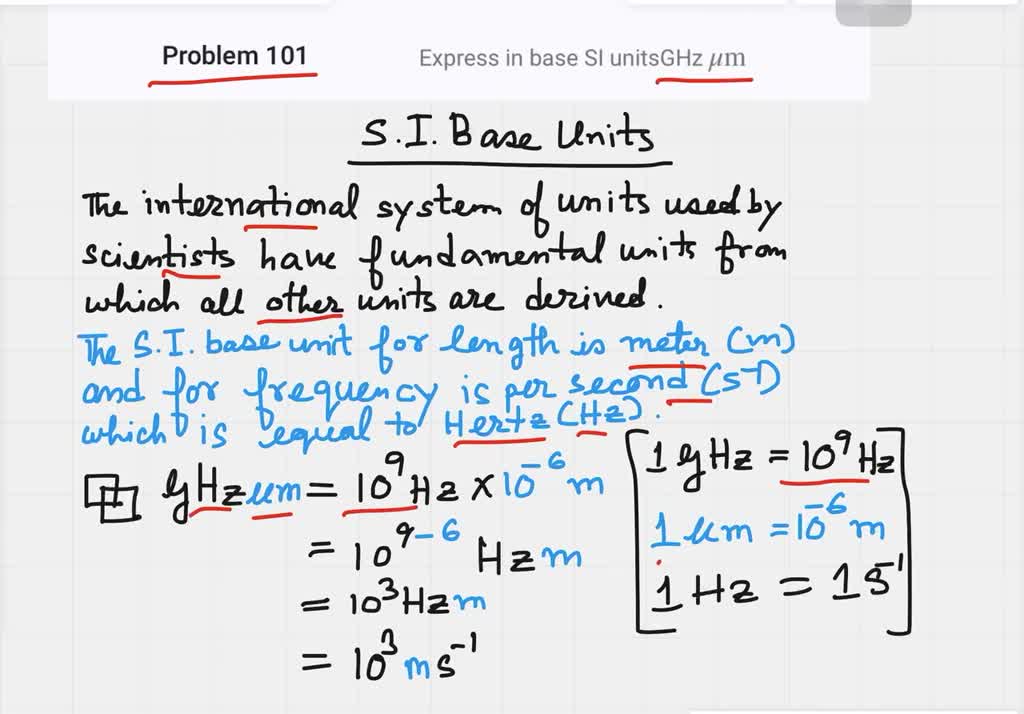 Problem 101 Express in base SI unitsGHz μm
S.I. Base Units
The international system of units used by
scientists have fundamental units from
which all other units are derived.
The S.I. base unit for length is meter (m)
and for frequency is per second (s⁻¹)
which is equal to Hertz (Hz).
GHz μm = 10⁹ Hz × 10⁻⁶ m
= 10⁹⁻⁶ Hz m
= 10³ Hz m
= 10³ m s⁻¹
1 GHz = 10⁹ Hz
1 μm = 10⁻⁶ m
1 Hz = 1 S⁻¹